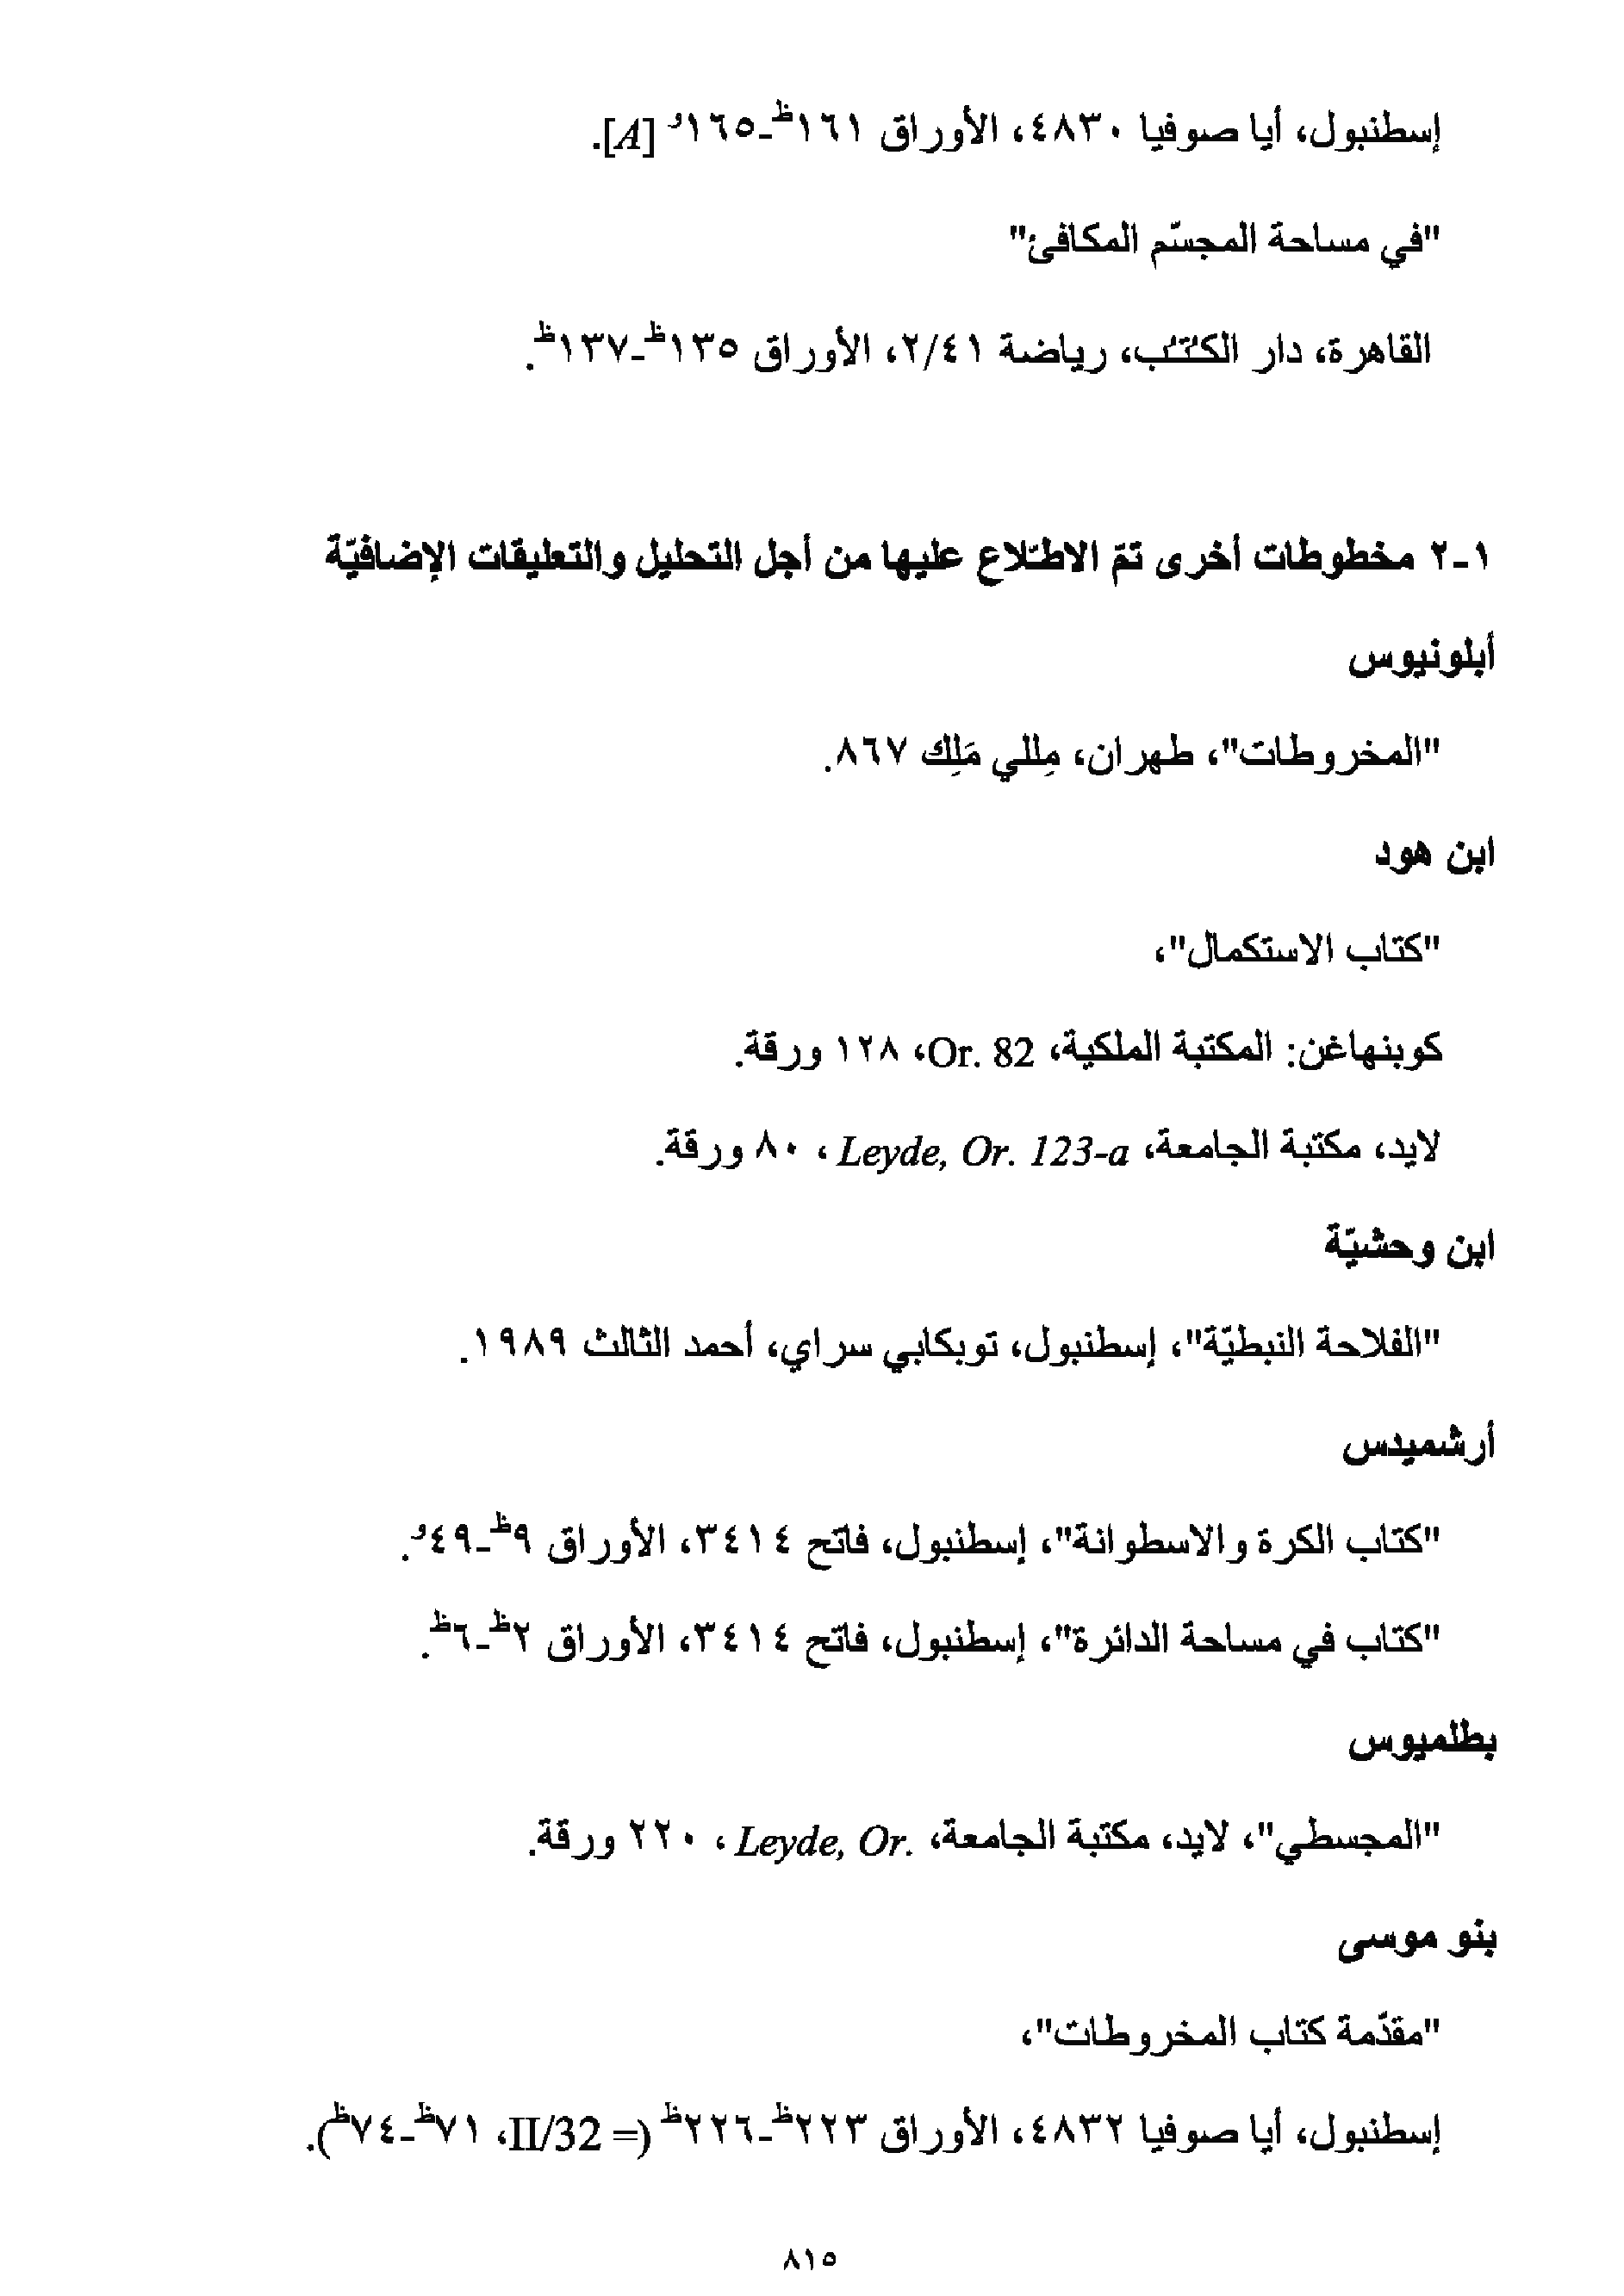 إسطنبول، أيا صوفيا ٤٨٣٠، الأوراق ١٦١ظ-١٦٥و [A].
"في مساحة المجسّم المكافئ"
القاهرة، دار الكتب، رياضة ٢/٤١، الأوراق ١٣٥ظ-١٣٧ظ.
١-٢ مخطوطات أخرى تمّ الاطّلاع عليها من أجل التحليل والتعليقات الإضافيّة
أبلونيوس
"المخروطات"، طهران، مِللي مَلِك ٨٦٧.
ابن هود
"كتاب الاستكمال"،
كوبنهاغن: المكتبة الملكية، Or. 82، ١٢٨ ورقة.
لايد، مكتبة الجامعة، Leyde, Or. 123-a، ٨٠ ورقة.
ابن وحشيّة
"الفلاحة النبطيّة"، إسطنبول، توبكابي سراي، أحمد الثالث ١٩٨٩.
أرشميدس
"كتاب الكرة والاسطوانة"، إسطنبول، فاتح ٣٤١٤، الأوراق ٩ظ-٤٩و.
"كتاب في مساحة الدائرة"، إسطنبول، فاتح ٣٤١٤، الأوراق ٢ظ-٦ظ.
بطلميوس
"المجسطي"، لايد، مكتبة الجامعة، Leyde, Or.، ٢٢٠ ورقة.
بنو موسى
"مقدّمة كتاب المخروطات"،
إسطنبول، أيا صوفيا ٤٨٣٢، الأوراق ٢٢٣ظ-٢٢٦ظ (= II/32، ٧١ظ-٧٤ظ).
٨١٥